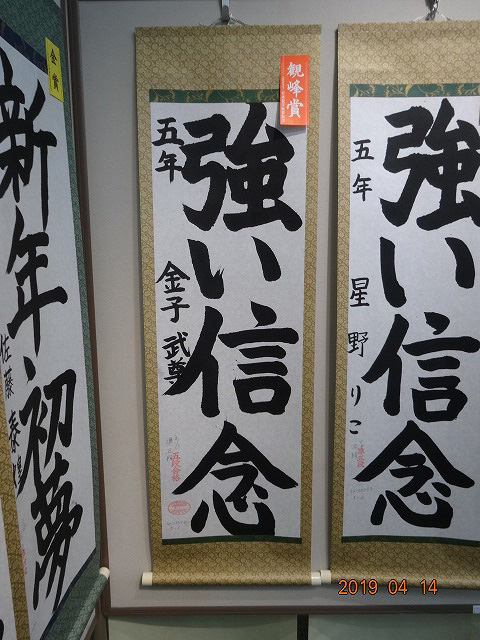 金賞
新年の初夢
佐藤
観峰賞
強い信念
五年
金子 武尊
五段合格
強い信念
五年
星野りこ
2019 04 14